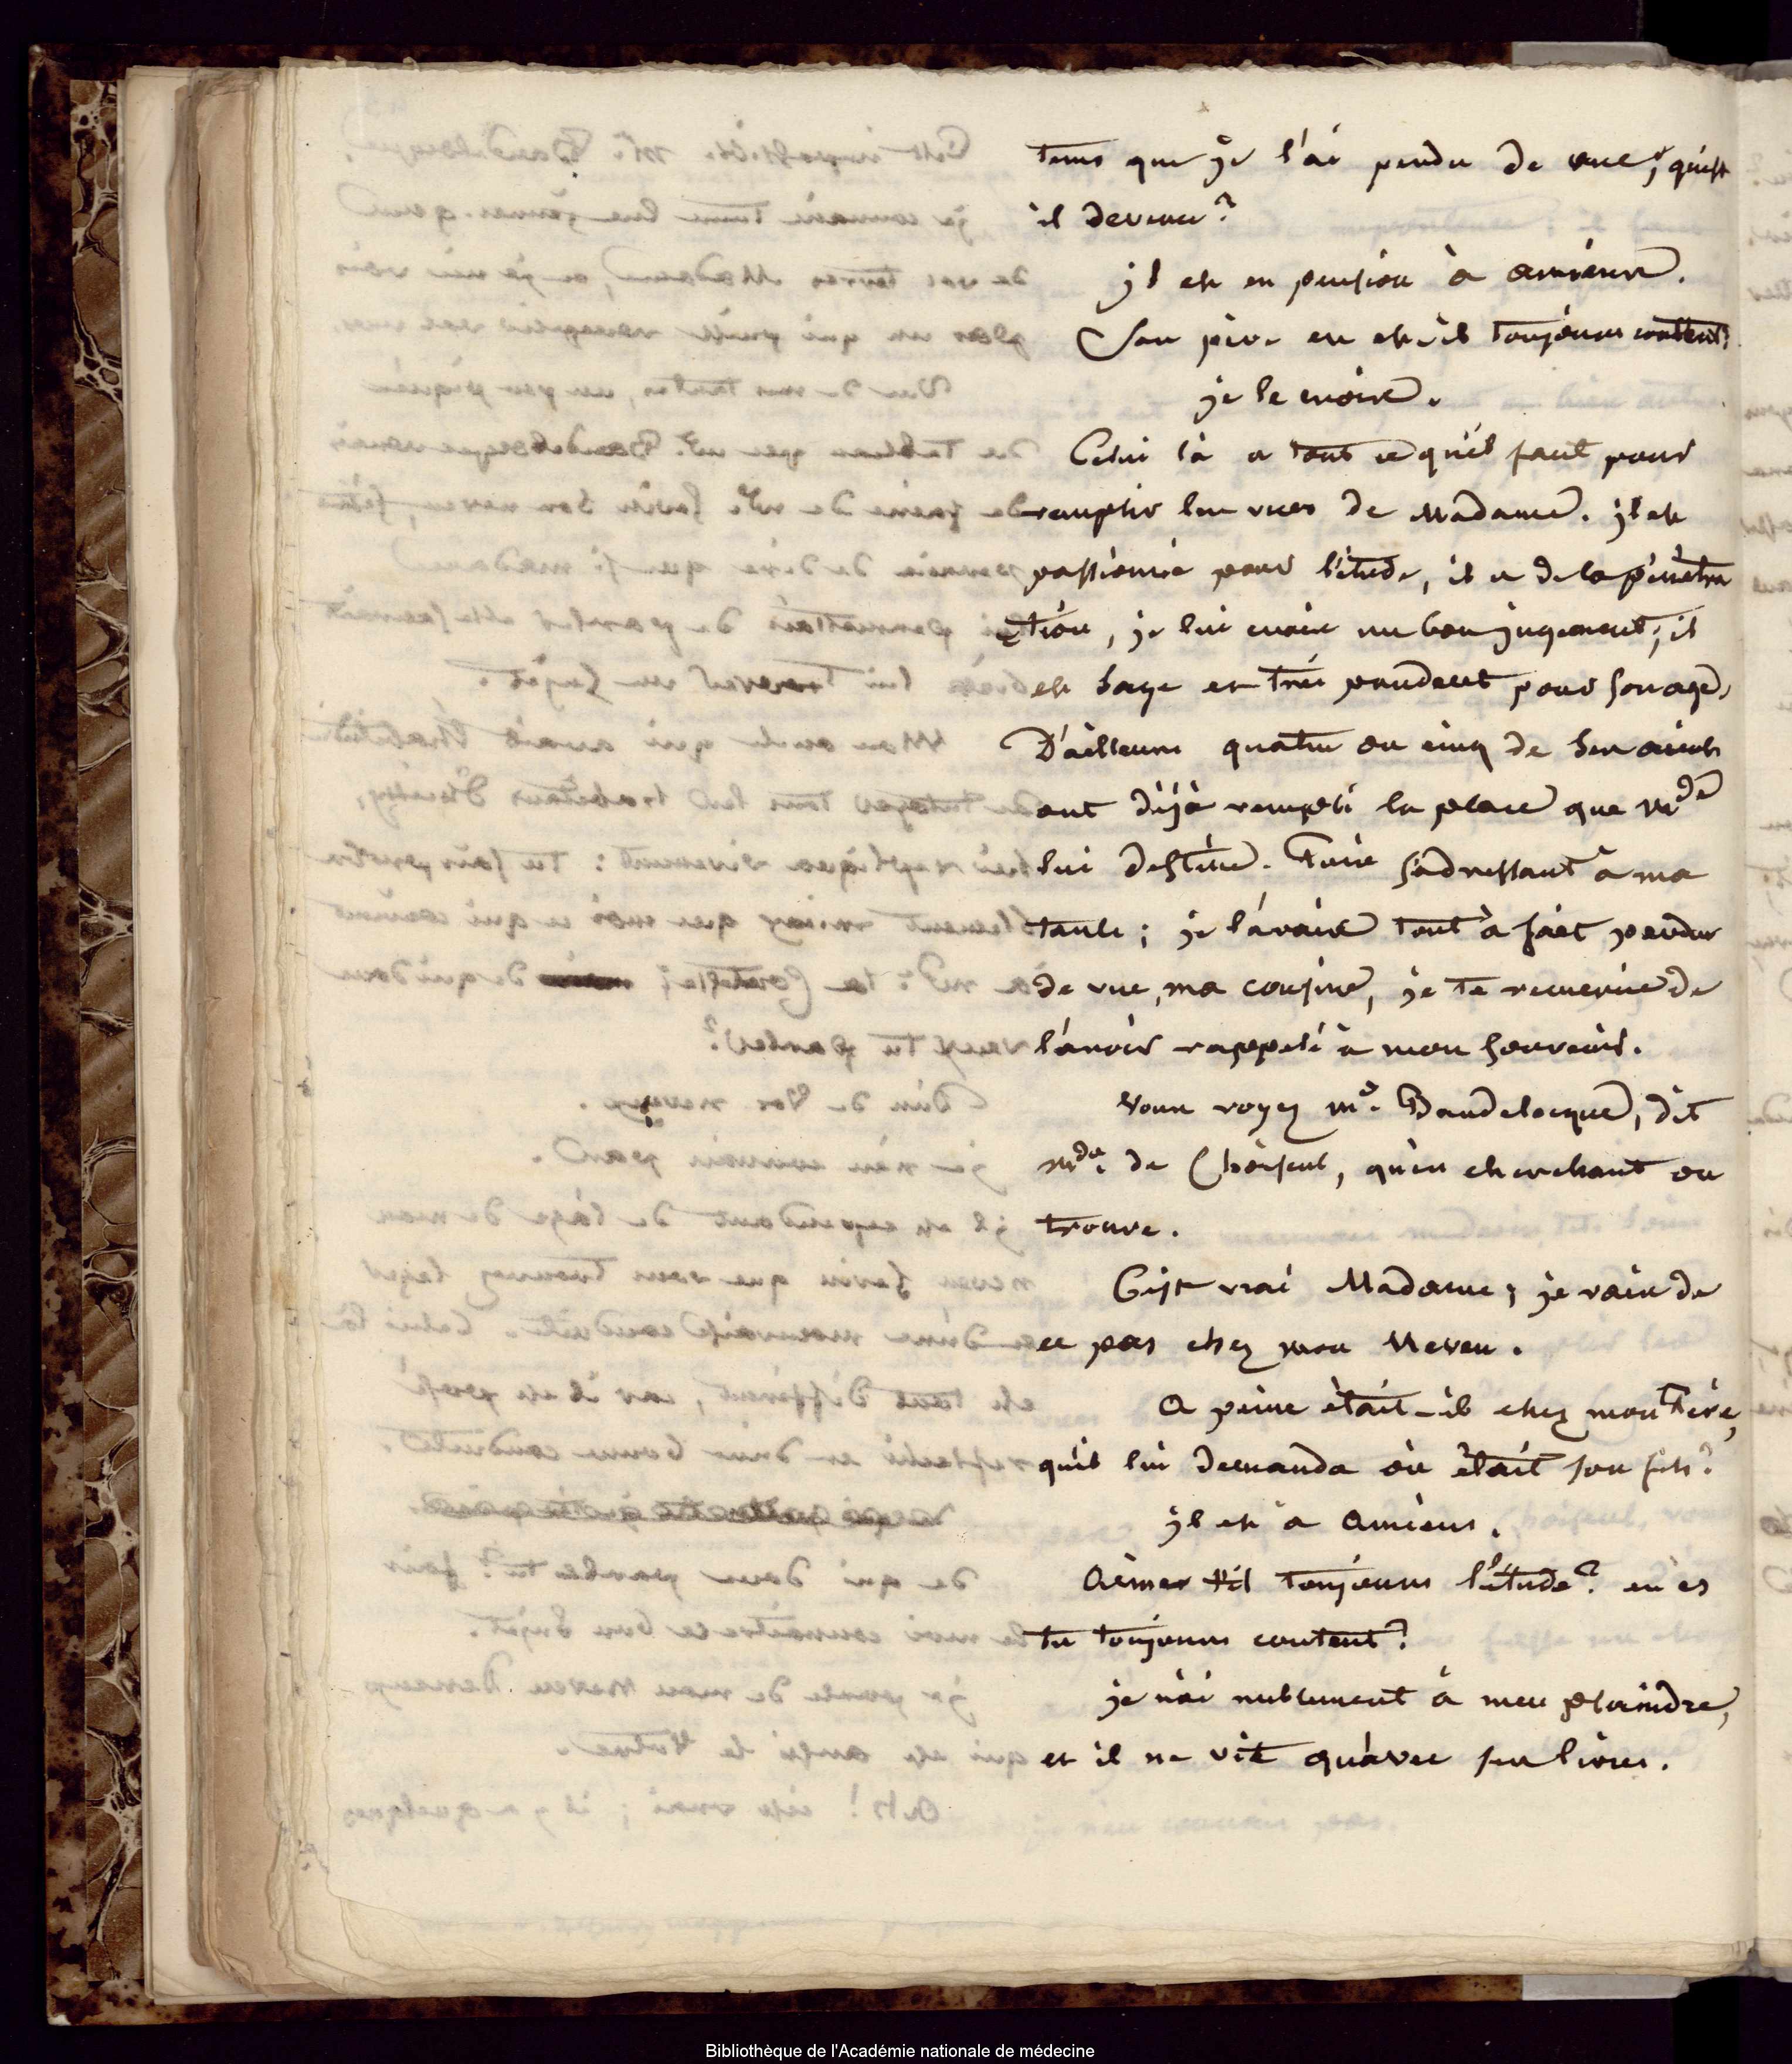 tems que je l'ai perdu de vue; qu'est
il devenu?
il est en pension à amiens.
Son père en est-il toujours content?
je le crois.
Celui là a tout ce qu'il faut pour
remplir les vues de Madame. il est
passionné pour l'étude, il a de la pénétra
tion, je lui crois un bon jugement; il
est sage et très prudent pour son age,
D'ailleurs quatre ou cinq de ses aieuls
ont déjà rempli la place que Mde
lui destine. Puis s'adressant à ma
tante; je l'avais tout à fait perdu
de vue, ma cousine, je te remercie de
l'avoir rappelé à mon souvenir.
Vous voyez Mr. Baudelocque, dit
Mde. de Choiseul, qu'en cherchant on
trouve.
C'est vrai Madame; je vais de
ce pas chez mon Neveu.
A peine était-il chez mon Père,
qu'il lui demanda où était son fils?
il est à Amiens.
Aime t'il toujours l'étude? en es
tu toujours content?
je n'ai nullement à m'en plaindre,
et il ne vit qu'avec ses livres.
Bibliothèque de l'Académie nationale de médecine